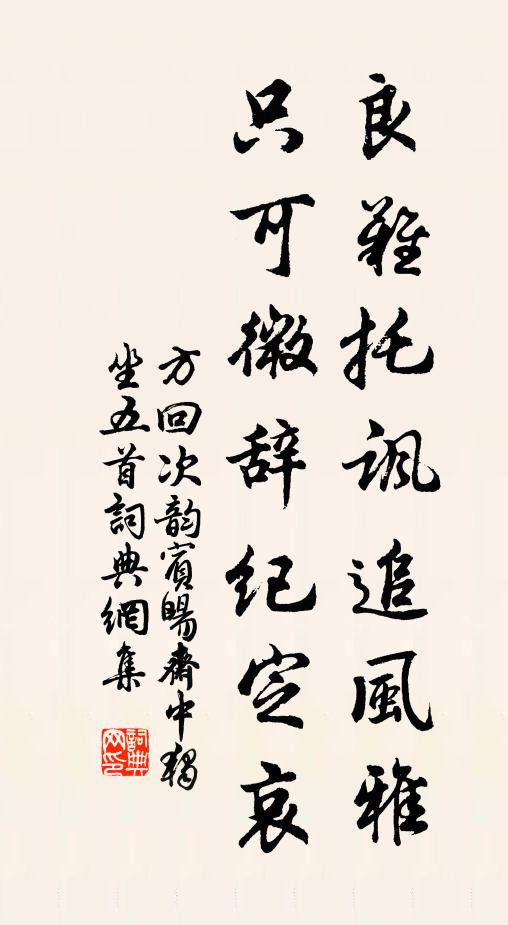 良難托諷追風雅
只可微辞纪定哀
方回次韵賓暘齋中獨
坐五首詞典網集
詞典网印